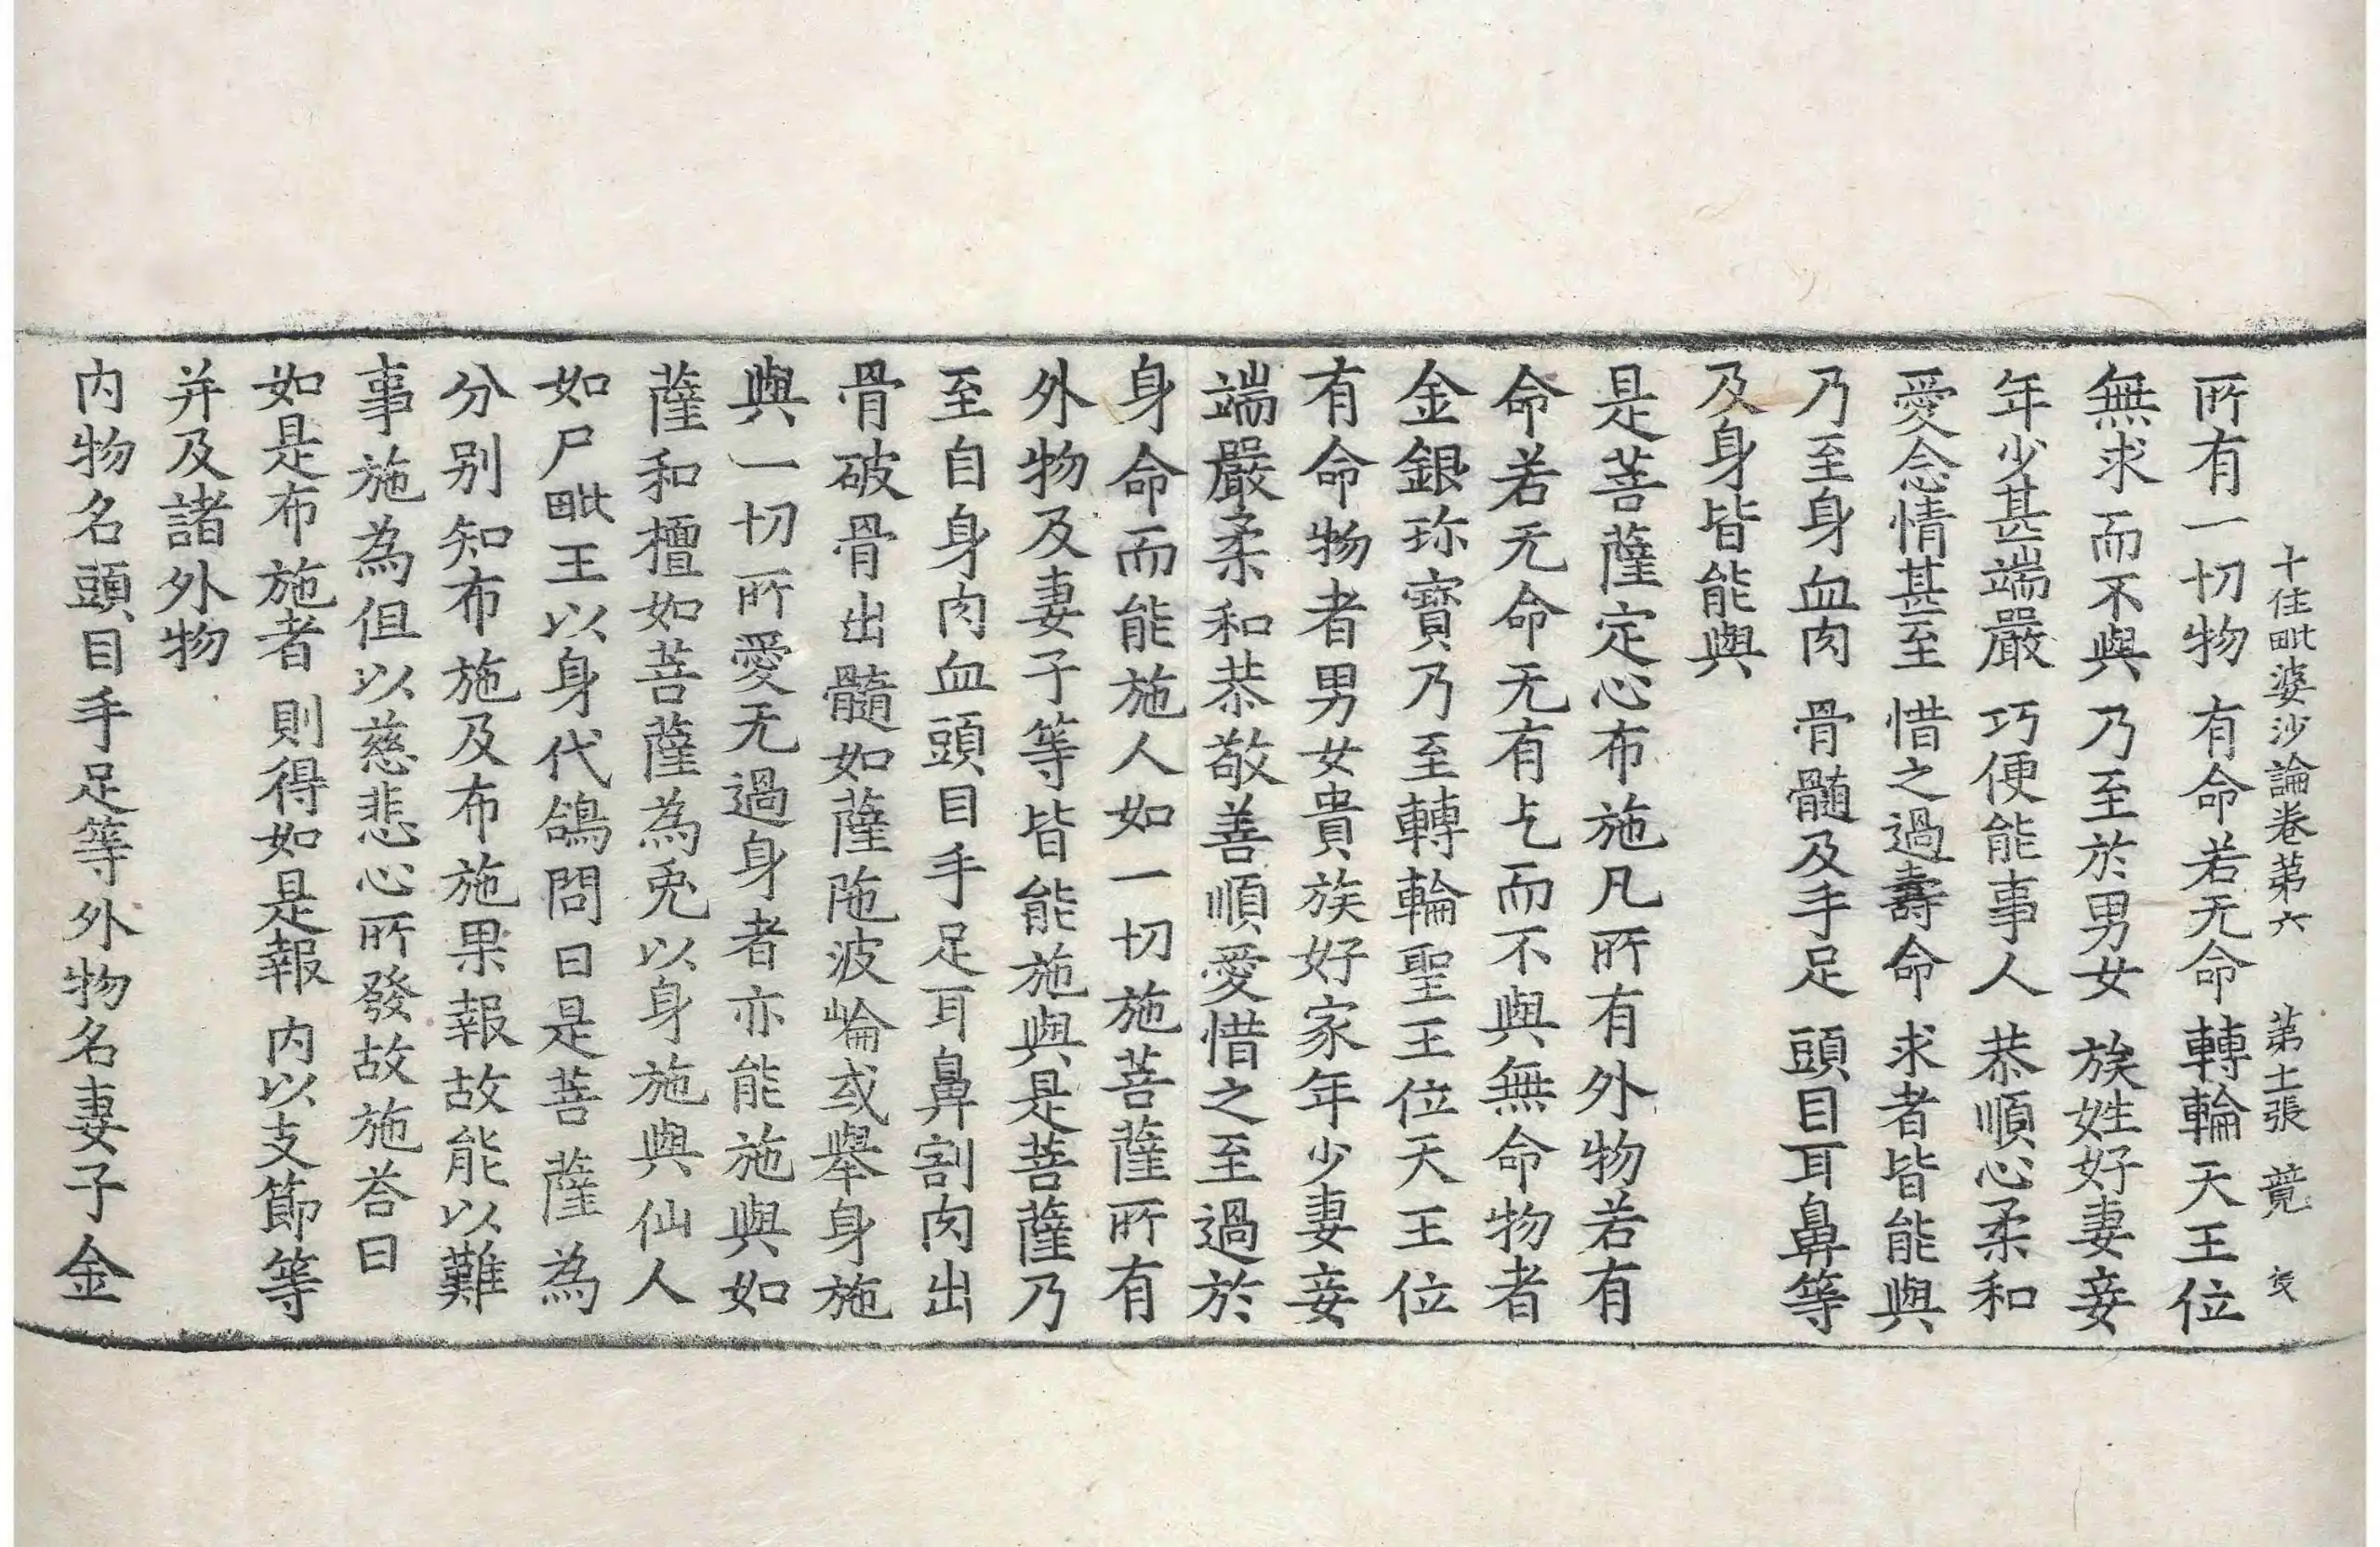 十住毗婆沙論卷第六　第十二張　竟
所有一切物　有命若无命　轉輪天王位
無求而不與　乃至於男女　族姓好妻妾
年少甚端嚴　巧便能事人　恭順心柔和
愛念情甚至　惜之過壽命　求者皆能與
乃至身血肉　骨髓及手足　頭目耳鼻等
及身皆能與
是菩薩定心布施凡所有外物若有
命若无命无有乞而不與無命物者
金銀珎寶乃至轉輪聖王王位天王位
有命物者男女貴族好家年少妻妾
端嚴柔和恭敬善順愛惜之至過於
身命而能施人如一切施菩薩所有
外物及妻子等皆能施與是菩薩乃
至自身肉血頭目手足耳鼻割肉出
骨破骨出髓如薩陁波崘或舉身施
與一切所愛无過身者亦能施與如
薩和檀如菩薩為兎以身施與仙人
如尸毗王以身代鴿問曰是菩薩為
分别知布施及布施果報故能以難
事施為但以慈悲心所發故施荅曰
如是布施者　則得如是報　内以支節等
并及諸外物
内物名頭目手足等外物名妻子金